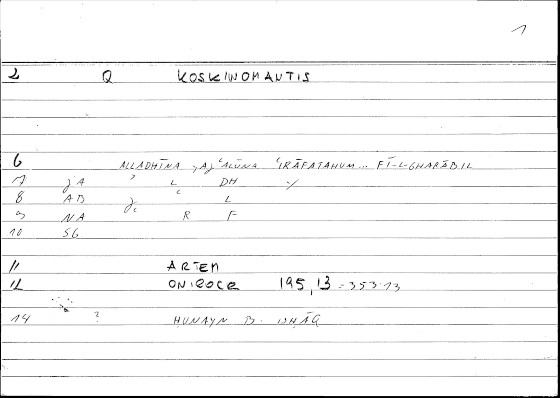 1
2 Q KOSKINOMANTIS
6 ALLADHĪNA YAJʿALŪNA ʿIRĀFATAHUM... FĪ-L-GHARĀBĪL
7 jA ʾ L DH Y
8 AB jʿ ʿ L
9 NA R F
10 SG
11 ARTEM
12 ONIROCR 195,13 = 353.13
14 ? ḤUNAYN B. ISḤĀQ